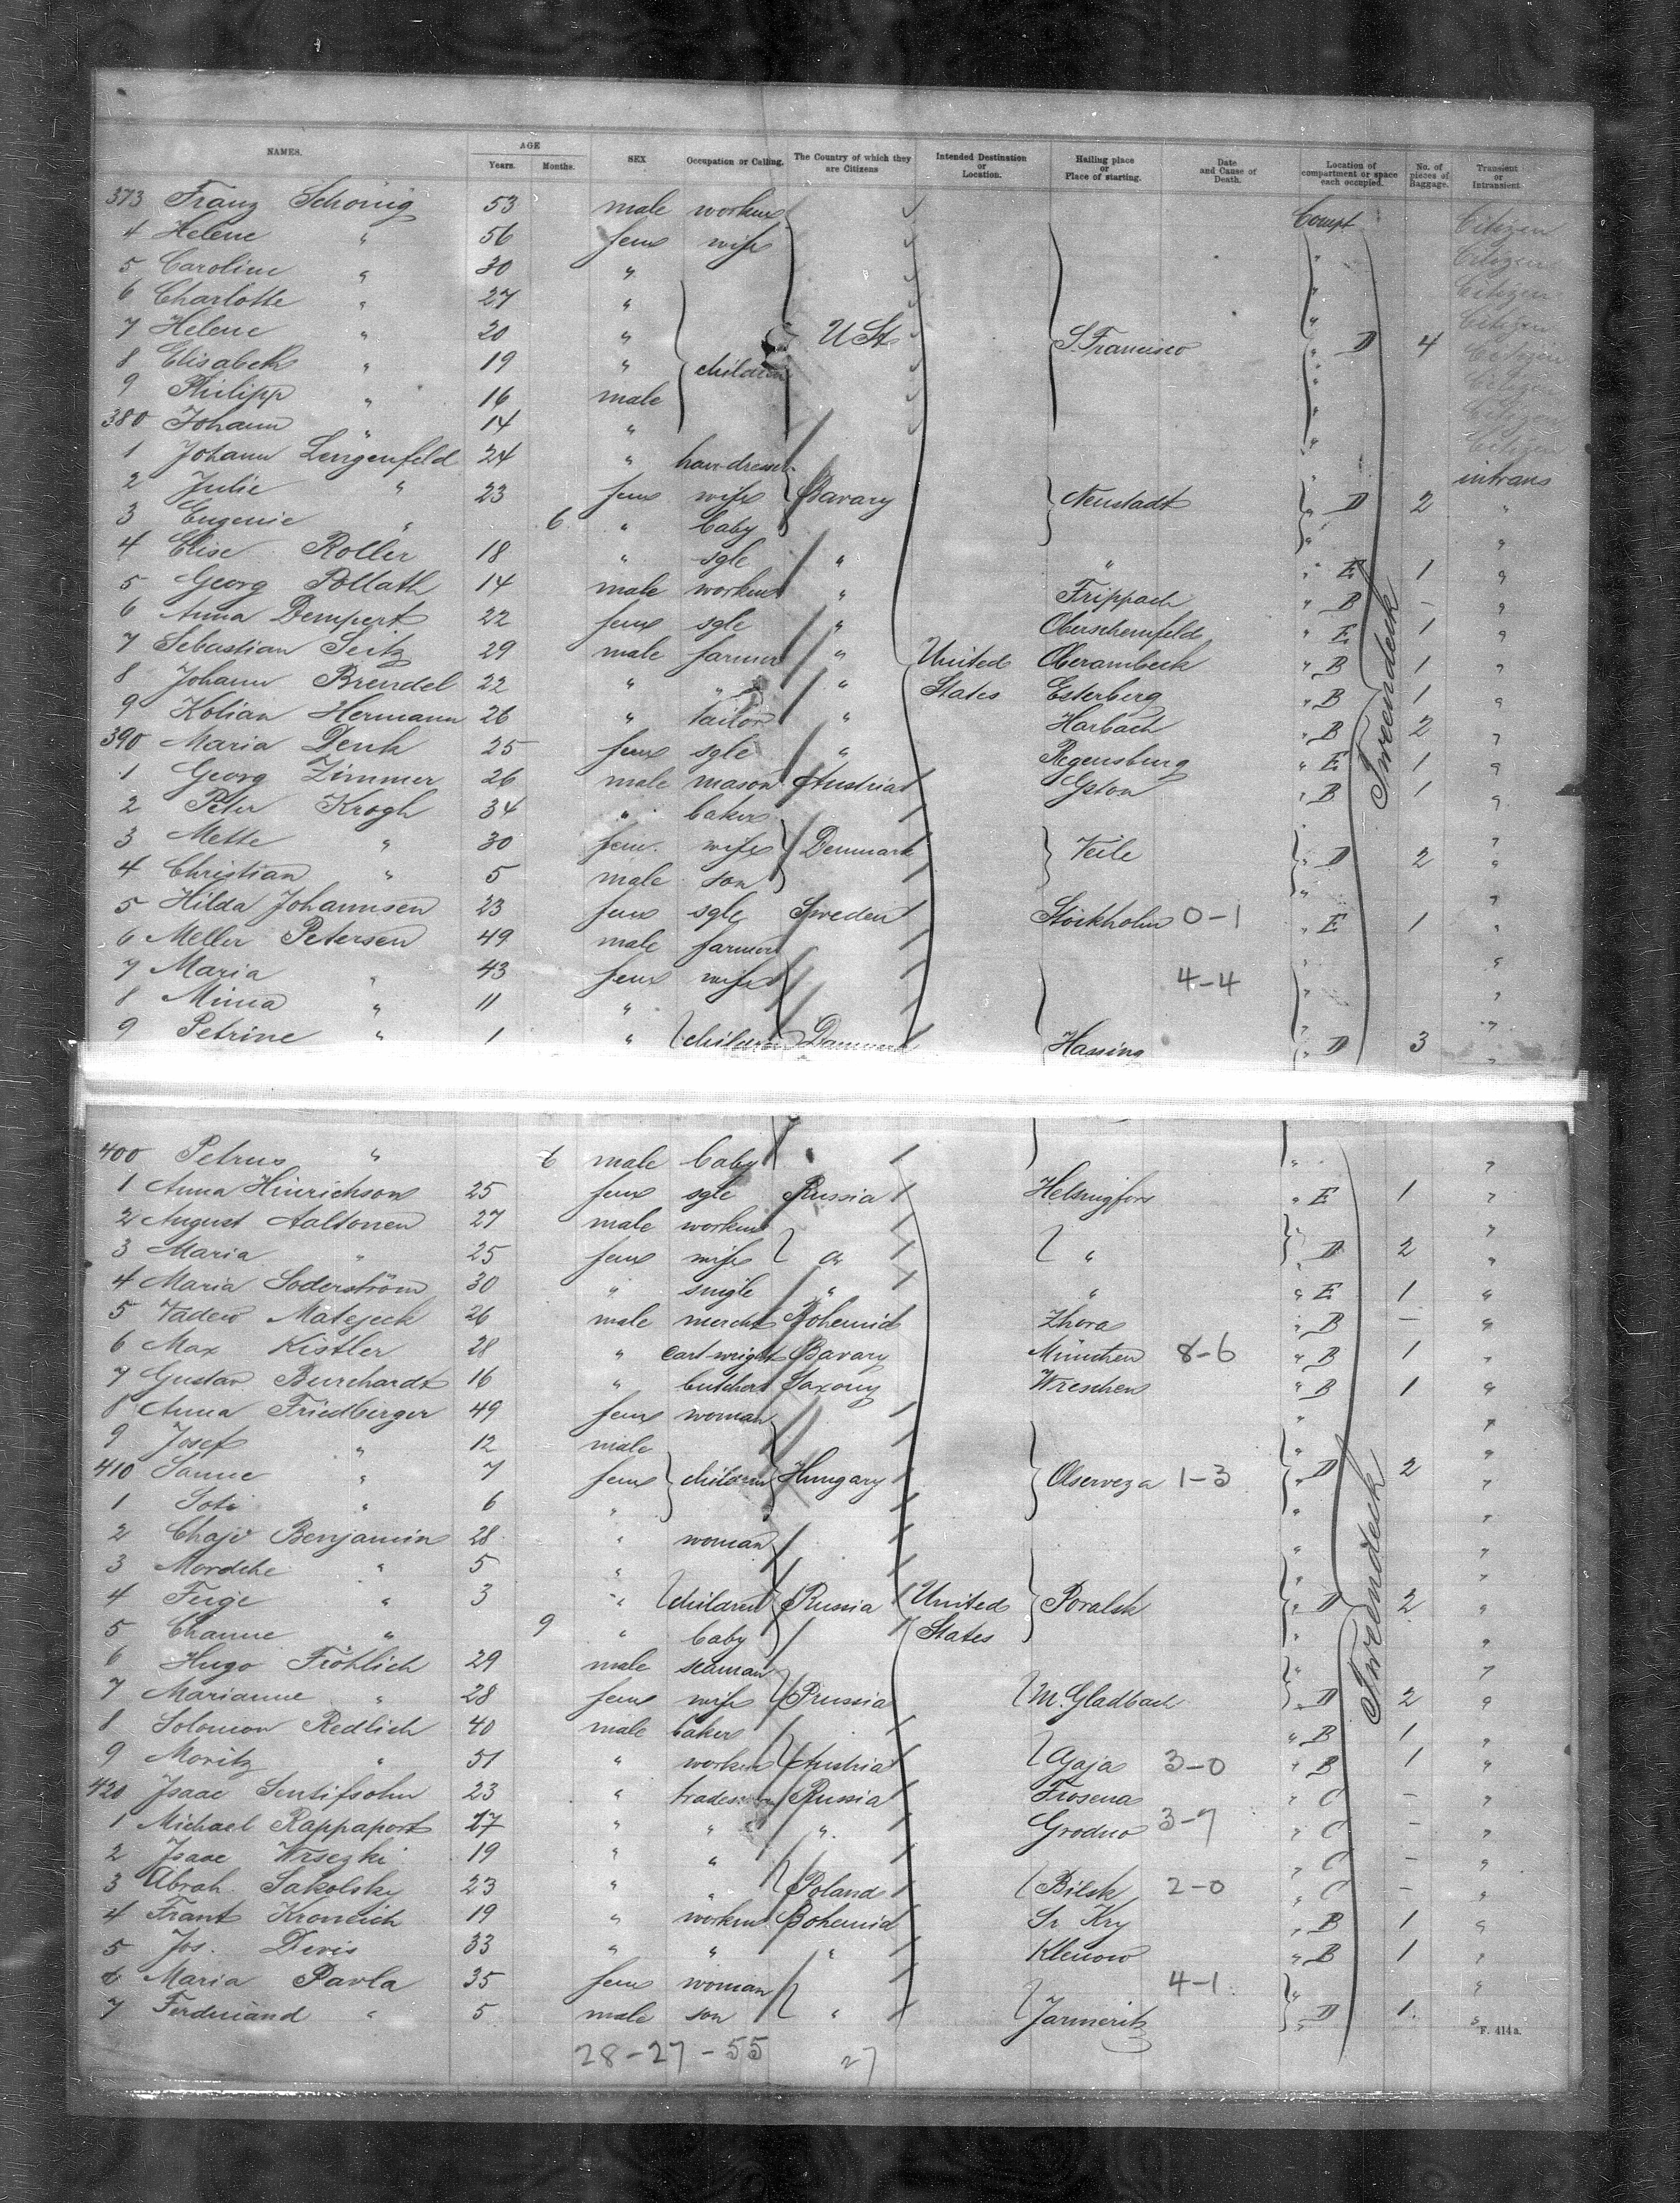 NAMES. AGE Years. Months. SEX Occupation or Calling. The Country of which they are Citizens Intended Destination or Location. Hailing place or Place of starting. Date and Cause of Death. Location of compartment or space each occupied. No. of pieces of Baggage. Transient or Intransient.
373 Franz Schönig 53 male worker Compt Citizen
4 Helene " 56 fem wife " Citizen
5 Caroline " 30 " " Citizen
6 Charlotte " 27 " " Citizen
7 Helene " 20 " U St. S. Francisco " D 4 Citizen
8 Elisabeth " 19 " children " Citizen
9 Philipp " 16 male " Citizen
380 Johann " 14 " " Citizen
1 Johann Lengenfeld 24 " hair-dresser " intrans
2 Julie " 23 fem wife Bavary Neustadt " D 2 "
3 Eugenie " 6 " baby " "
4 Elise Roller 18 " sgle " " " E 1 "
5 Georg Pollath 14 male worker " Frippach " B - "
6 Anna Dempert 22 fem sgle " Oberschemfeld " E 1 "
7 Sebastian Seitz 29 male farmer " United Oberambeck " B 1 "
8 Johann Brendel 22 " " " States Esterberg " B 1 "
9 Kolian Hermann 26 " tailor " Harbach " B 2 "
390 Maria Denk 25 fem sgle " Regensburg " E 1 "
1 Georg Zimmer 26 male mason Austria Gston " B 1 "
2 Peter Krogh 34 " baker " "
3 Mette " 30 fem. wife Denmark Veile " D 2 "
4 Christian " 5 male son " "
5 Hilda Johannsen 23 fem sgle Sweden Stockholm 0-1 " E 1 "
6 Meller Petersen 49 male farmer " "
7 Maria " 43 fem wife 4-4 " "
8 Minna " 11 " " "
9 Petrine " 1 " children Danmark Hassing " D 3 "
400 Petrus " 6 male baby " " "
1 Anna Hinrichson 25 fem sgle Russia Helsingfors " E 1 "
2 August Aaltonen 27 male worker " "
3 Maria " 25 fem wife " " " D 2 "
4 Maria Söderström 30 " single " " " E 1 "
5 Tadeo Matejeck 26 male mercht Bohemia Zhora " B - "
6 Max Kistler 28 " cart-wright Bavary München 8-6 " B 1 "
7 Gustav Burchardt 16 " butcher Saxony Wreschen " B 1 "
8 Anna Friedberger 49 fem woman " "
9 Josef " 12 male " "
410 Sanne " 7 fem children Hungary Olserveza 1-3 " D 2 "
1 Soti " 6 " " "
2 Chaje Benjamin 28 " woman " "
3 Mordche " 5 " " "
4 Feige " 3 " children Russia United Poralsk " D 2 "
5 Channe " 9 " baby States " "
6 Hugo Fröhlich 29 male seaman " "
7 Marianne " 28 fem wife Prussia M. Gladbach " D 2 "
8 Solomon Redlich 40 male baker " B 1 "
9 Moritz " 51 " worker Austria Gaja 3-0 " B 1 "
420 Isaac Sentifsohn 23 " tradesm Russia Frosena " C - "
1 Michael Rappaport 27 " " " Grodno 3-7 " C - "
2 Isaac Wrsezki 19 " " " C - "
3 Abrah. Sakolsky 23 " " Poland Bilsk 2-0 " C - "
4 Frant Kroneich 19 " worker Bohemia Sr Kry " B 1 "
5 Jos. Devis 33 " " " Klenow " B 1 "
6 Maria Pavla 35 fem woman 4-1 " "
7 Ferdinand " 5 male son " Jarmeritz " D 1. "
F. 414a.
28-27-55 27
Tweendeck
Tweendeck